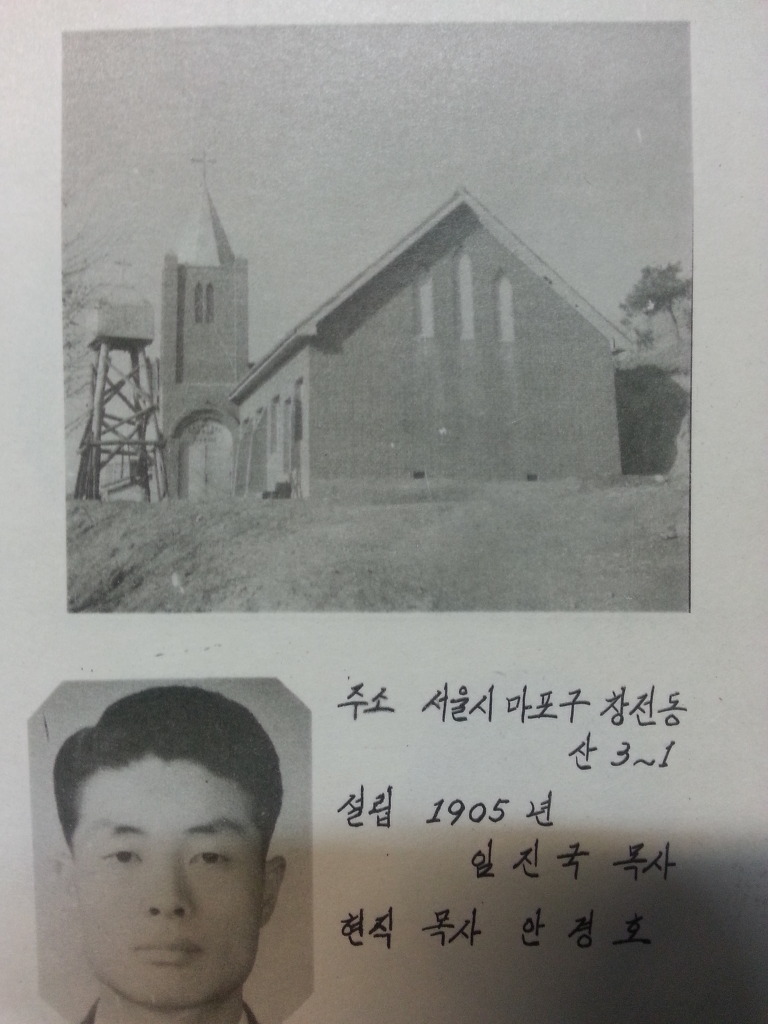 주소 서울시 마포구 창전동
산 3~1
설립 1905 년
임 진 국 목사
현직 목사 안 경 호